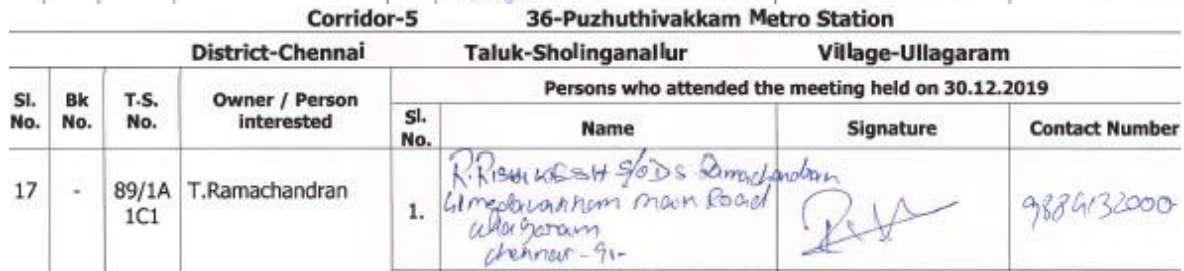 Corridor-5 36-Puzhuthivakkam Metro Station
District-Chennai Taluk-Sholinganallur Village-Ullagaram
Sl. No. Bk No. T.S. No. Owner / Person interested Persons who attended the meeting held on 30.12.2019
Sl. No. Name Signature Contact Number
17 - 89/1A 1C1 T.Ramachandran 1. R. RISHIKESH S/o D S Ramachandran
main Road
ullagaram
chennai - 91-